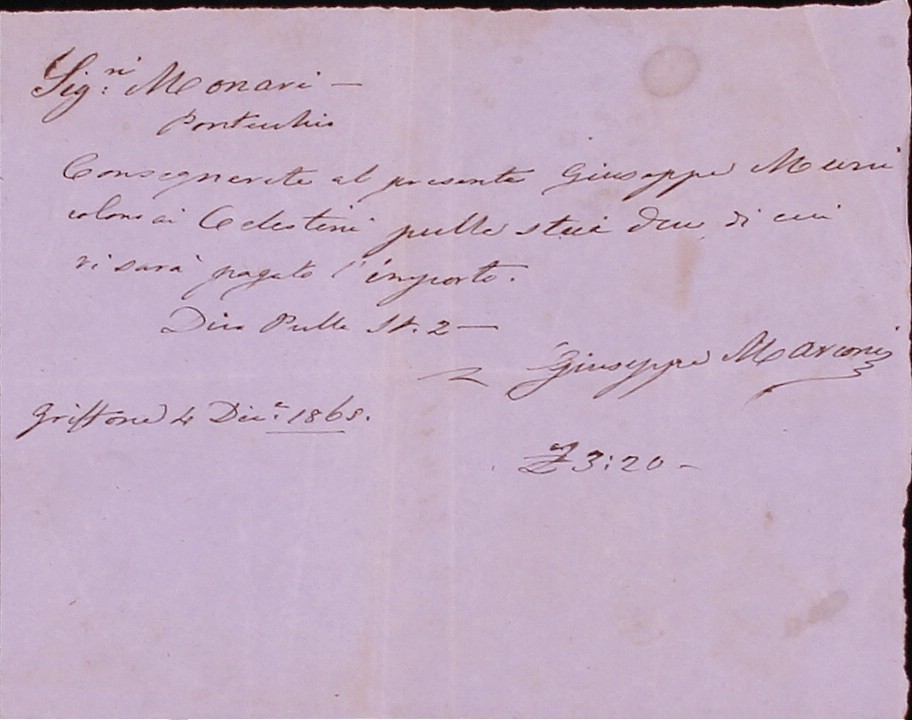 Sig:ri Monari —
Pontecchio
Consegnerete al presente Giuseppe Muri
colono ai Celestini pulle staia due di cui
vi sarà pagato l'importo.
Dico Pulle St. 2 —
Giuseppe Marconi
Griffone 4 Dic.e 1868.
£ 3:20 —